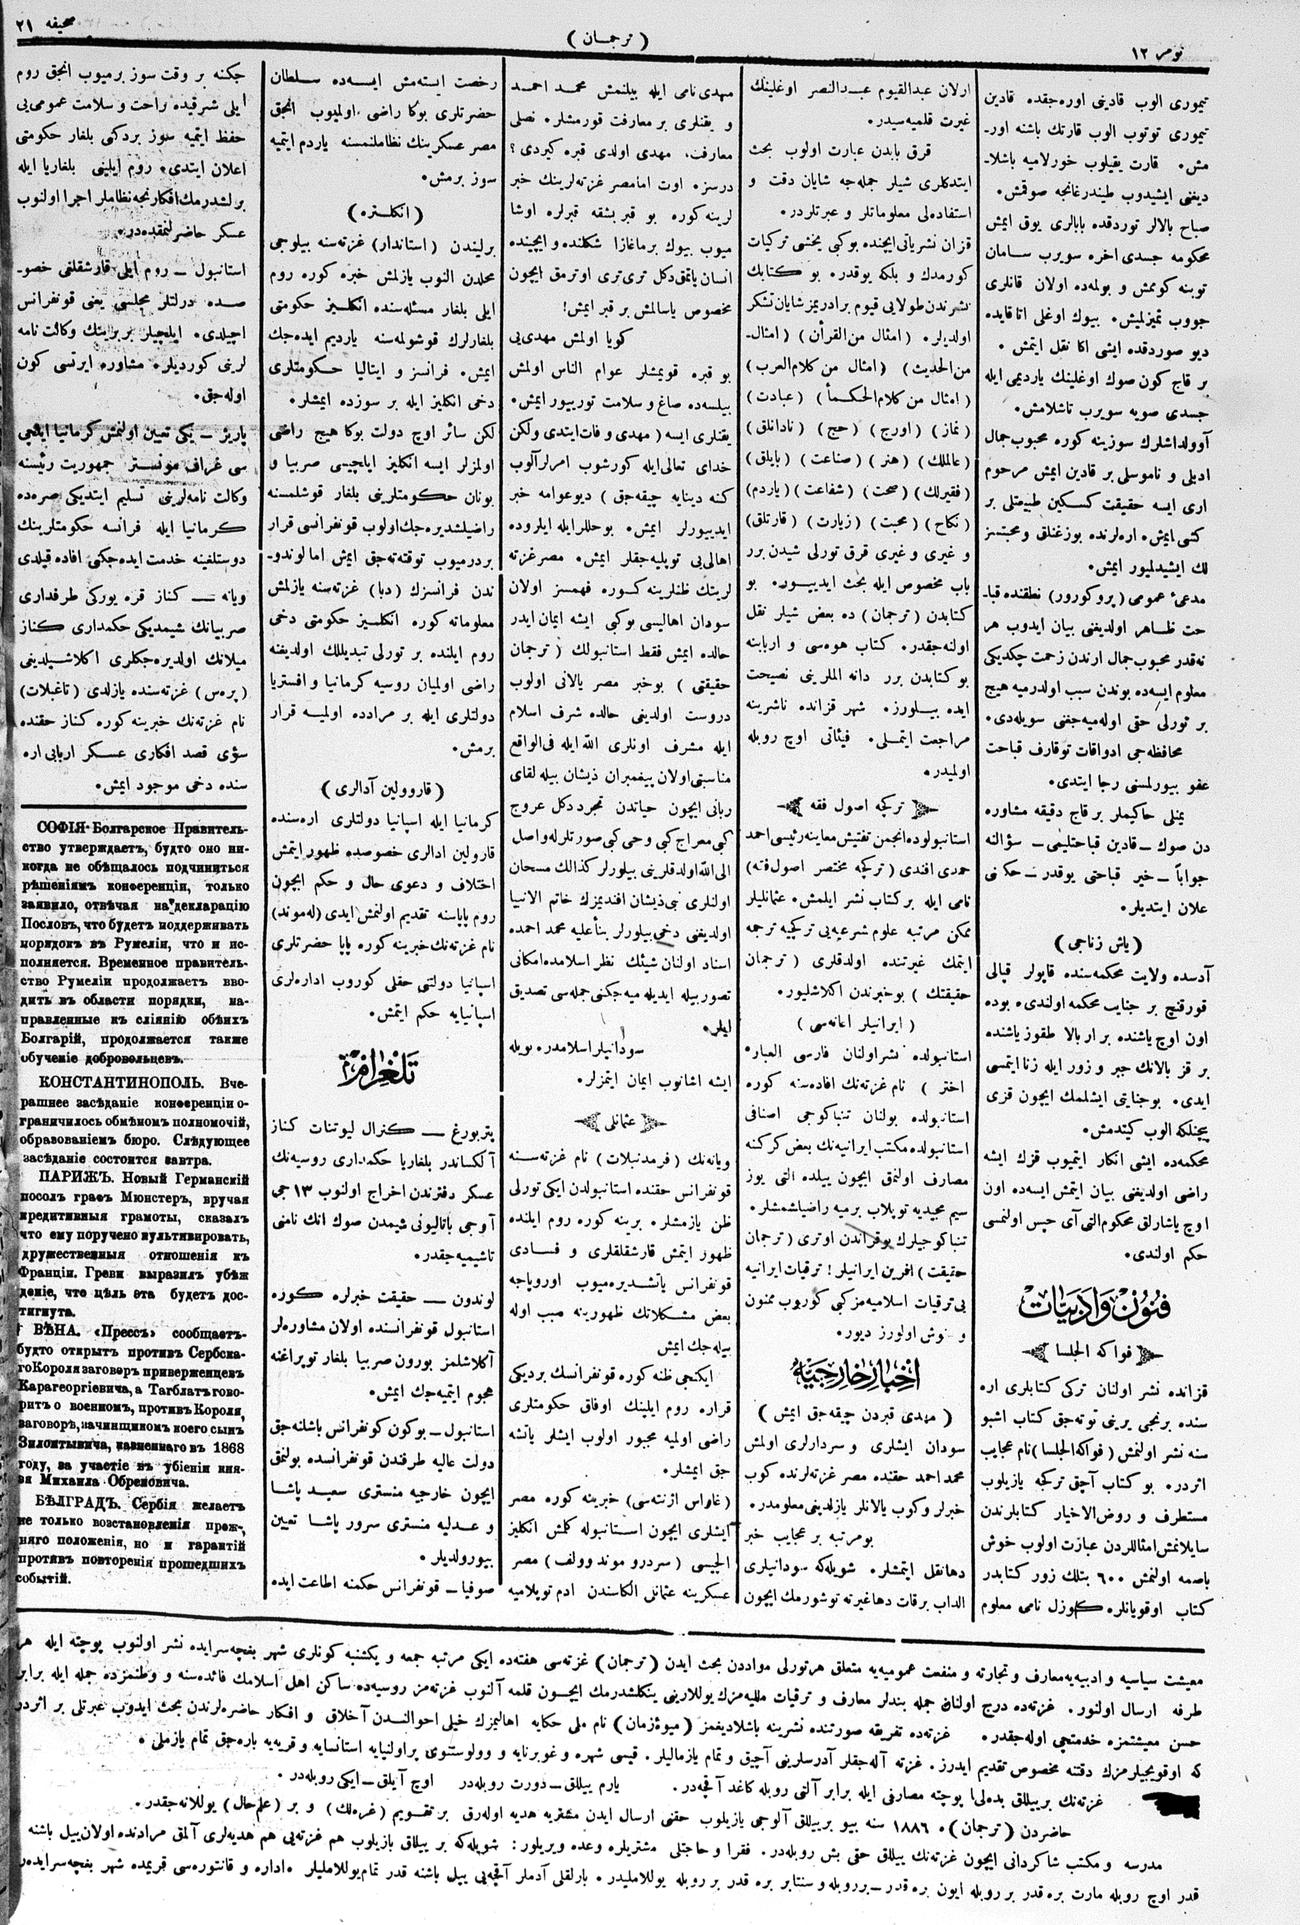 نومر ١٢
( ترجمان )
صحیفه ٢١
تیموری الوب قادینی اوره‌جقده قادین
تیموری توتوب الوب قارتك باشنه اور-
مش. قارت یقیلوب خورلامیه باشلا-
دیغنی ایشیدوب طیندرغانجه صوقمش.
صباح بالالر توردقده بابالری یوق ایمش
محکومه جسدی اخره سویرب سامان
توبنه کومش و بولمه‌ده اولان قانلری
جووب تمیزلمیش. بیوك اوغلی اتا قایده
دیو صوردقده ایشی اکا نقل ایتمش.
بر قاچ کون صوك اوغلینك یاردیمی ایله
جسدی صویه سویرب تاشلامش.
آوولداشلرك سوزینه کوره محبوب‌جمال
ادبلی و ناموسلی بر قادین ایمش مرحوم
اری ایسه حقیقت کسکین طبیعتلی بر
کشی ایمش. اره‌لرنده بوزغنلق و محبتسز
لك ایشیدلمیور ایمش.
مدعیٔ عمومی (پروکورور) نطقنده قبا-
حت ظاهر اولدیغنی بیان ایدوب هر
نه‌قدر محبوب‌جمال ارندن زحمت چکدیکی
معلوم ایسه‌ده بوندن سبب اولدرمیه هیچ
بر تورلی حقی اوله‌میه‌جغنی سویله‌دی.
محافظه‌جی ادواقات توقارف قباحت
عفو بیورلمسنی رجا ایتدی.
یمنلی حاکیملر بر قاچ دقیقه مشاوره
دن صوك – قادین قباحتلیمی – سؤالنه
جواباً – خیر قباحتی یوقدر – حکمنی
علان ایتدیلر.
(یاش زناجی)
آدسده ولایت محکمه‌سنده قاپولر قپالی
قورقنچ بر جنایت محکمه اولندی. بوده
اون اوچ یاشنده بر اربالا طقوز یاشنده
بر قز بالانك جبر و زور ایله زنا ایتمسی
ایدی. بوجنایتی ایشلمك ایچون قزی
پیچنلکه الوب کیتدمش.
محکمه‌ده ایشی انکار ایتمیوب قزك ایشه
راضی اولدیغنی بیان ایتمش ایسه‌ده اون
اوچ یاشارلق محکوم التی آی حبس اولنمسی
حکم اولندی.
فنون و ادبیات
فواکه الجلسا
قزانده نشر اولنان ترکی کتابلری اره
سنده برنجی یرینی توته‌جق کتاب اشبو
سنه نشر اولنمش (فواکه الجلسا) نام عجایب
اثردر. بو کتاب آچق ترکیجه یازیلوب
مستطرف و روض الاخیار کتابلرندن
سایلانمش امثاللردن عبارت اولوب خوش
باصمه اولنمش ٦٠٠ بتلك زور کتابدر
کتاب اوقویانلره کوزل نامی معلوم
ارلان عبدالقیوم عبدالنصر اوغلینك
غیرت قلمیه‌سیدر.
قرق بابدن عبارت اولوب بحث
ایتدکلری شیلر جمله‌جه شایان دقت و
استفاده‌لی معلوماتلر و عبرتلردر.
قزان نشریاتی ایچنده بوکبی یخشی ترکیات
کورمدك و بلکه یوقدر. بو کتابك
نشرندن طولایی قیوم برادریمز شایان تشکر
اولدیلر. (امثال من القرأن) (امثال-
من الحدیث) (امثال من کلام العرب)
(امثال من کلام الحکمأ) (عبادت)
(نماز) (اورج) (حج) (نادانلق)
(عالملك) (هنر) (صناعت) (بایلق)
(فقیرلك) (صحت) (شفاعت) (یاردم)
(نکاح) (محبت) (زیارت) (قارتلق)
و غیری و غیری قرق تورلی شیدن برر
باب مخصوص ایله بحث ایدییور. بو
کتابدن (ترجمان) ده بعض شیلر نقل
اولنه‌جقدر. کتاب هوه‌سی و اربابنه
بو کتابدن برر دانه المدلرینی نصیحت
ایده بیلورز. شهر قزانده ناشرینه
مراجعت ایتملی. فیئاتی اوچ روبله
اولمیدر.
ترکیجه اصول فقه
استانبولده انجمن تفتیش معاینه رئیسی احمد
حمدی افندی (ترکیجه مختصر اصول فقه)
نامی ایله بر کتاب نشر ایلمش. عثمانلیلر
ممکن مرتبه علوم شرعیه‌یی ترکیجه ترجمه
ایتمك غیرتنده اولدقلری (ترجمان
حقیقتك) بوخبرندن اکلاشلیور.
(ایرانیلر اعانه‌سی)
استانبولده نشر اولنان فارسی العباره
اختر) نام غزته‌نك افاده‌سنه کوره
استانبولده بولنان تنباکوجی اصنافی
استانبولده مکتب ایرانیه‌نك بعض کرکنه
مصارف اولنمق ایچون ییلده التی یوز
سیم مجیدیه توپلاب برمیه راضیلشمشلر.
تنباکوجیلرك بوقراندن اوتری (ترجمان
حقیقت) افرین ایرانیلر! ترقیات ایرانیه
یی ترقیات اسلامیه‌مزکبی کوروب ممنون
و خوش اولورز دیور.
اخبار خارجیه
(مهدی قبردن چیقه‌جق ایمش)
سودان ایشلری و سردارلری اولمش
محمد احمد حقنده مصر غزته‌لرنده کوب
خبرلر و کوب یالانلر یازلدیغی معلومدر.
بومرتبه بر عجایب خبر
دها نقل ایتمشلر. شویله‌که سودانیلری
الداب برقات دها غیرته توشورمك ایچون
مهدی نامی ایله بیلنمش محمد احمد
و یقنلری بر معارفت قورمشلر. نصلی
معارفت. مهدی اولدی قبره کیردی؟
درسز. اوت امامصر غزته‌لرینك خبر
لرینه کوره بو قبر بشقه قبرلره اوشا
میوب بیوك برماغازا شکلنده و ایچینده
انسان یاتقی دکل تری تری اوترمق ایچون
مخصوص یاسالمش بر قبر ایمش!
کویا اولمش مهدی‌یی
بو قبره قویمشلر عوام الناس اولمش
بیلسه‌ده صاغ و سلامت توریبور ایمش.
یقنلری ایسه (مهدی وفات ایتدی ولکن
خدای تعالی ایله کورشوب امرلر آلوب
کنه دنیایه چیقه‌جق) دیو عوامه خبر
ایدییورلر ایمش. بو حللر ایله ایلروده
اهالی‌یی توپلیه‌جقلر ایمش. مصر غزته
لرینك ظنلرینه کوره فهمسز اولان
سودان اهالیسی بوکبی ایشه ایمان ایدر
حالده ایمش فقط استانبولك (ترجمان
حقیقتی) بوخبر مصر یالانی اولوب
دروست اولدیغی حالده شرف اسلام
ایله مشرف اونلری الله ایله فی الواقع
مناسبتی اولان پیغمبران ذیشان بیله لقای
ربانی ایچون حیاتدن تجرد دکل عروج
کبی معراج کبی و حی کبی صورتلرله واصل
الی الله اولدقلرینی بیلورلر کذالك مسحان
اولنلری نبی ذیشان افندیمزك خاتم الانبیا
اولدیغنی دخی بیلورلر بنأعلیه محمد احمده
اسناد اولنان شیئك نظر اسلامده امکانی
تصور بیله ایدیله‌میه‌جکنی جمله‌سی تصدیق
ایلر.
سودانیلر اسلامدر. بویله
ایشه اشانوب ایمان ایتمزلر.
عثمانلی
ویانه‌نك (فرمدنبلات) نام غزته‌سنه
قونفرانس حقنده استانبولدن ایکی تورلی
ظن یازمشلر. برینه کوره روم ایلنده
ظهور ایتمش قارشقلقلری و فسادی
قونفرانس یاتشدیره‌میوب اوروپاجه
بعض مشکلاتك ظهورینه سبب اوله
بیله‌جك ایمش
ایکنجی ظنه کوره قونفرانسك بردیکی
قراره روم ایلینك اوفاق حکومتلری
راضی اولمیه مجبور اولوب ایشلر یاتشه
جق ایمشلر.
(غاواس اژنته‌سی) خبرینه کوره مصر
ایشلری ایچون استانبوله کلمش انکلیز
الچیسی (سردرو موند وولف) مصر
عسکرینه عثمانلی الکاسندن ادم توپلامیه
رخصت ایسته‌مش ایسه‌ده سلطان
حضرتلری بوکا راضی اولمیوب انجق
مصر عسکرینك نظاملنمسنه یاردم ایتمیه
سوز برمش.
(انکلتره)
برلیندن (استاندار) غزته‌سنه بیلوجی
محلدن النوب یازلمش خبره کوره روم
ایلی بلغار مسئله‌سنده انکلیز حکومتی
بلغارلرك قوشولمه‌سنه یاردیم ایده‌جك
ایمش. فرانسز و ایتالیا حکومتلری
دخی انکلیز ایله بر سوزده ایمشلر.
لکن سائر اوچ دولت بوکا هیچ راضی
اولمزلر ایسه انکلیز ایلچیسی صربیا و
یونان حکومتلرینی بلغار قوشلمسنه
راضیلشدیره‌جك اولوب قونفرانسی قرار
بردرمیوب توقته‌جق ایمش اما لوندو-
ندن فرانسزك (دبا) غزته‌سنه یازلمش
معلوماته کوره انکلیز حکومتی دخی
روم ایلنده بر تورلی تبدیللك اولدیغنه
راضی اولمیان روسیه کرمانیا و افستریا
دولتلری ایله بر مرادده اولمیه قرار
برمش.
(قاروولین آدالری)
کرمانیا ایله اسپانیا دولتلری اره‌سنده
قارولین ادالری خصوصده ظهور ایتمش
اختلاف و دعوی حال و حکم ایچون
روم پاپاسنه تقدیم اولنمش ایدی (له‌موند)
نام غزته‌نك خبرینه کوره پاپا حضرتلری
اسپانیا دولتی حقلی کوروب اداره‌لری
اسپانیایه حکم ایتمش.
تلغرافمز
پتربورغ – کنرال لیوتنات کناز
آلکساندر بلغاریا حکمداری روسیه‌نك
عسکر دفترندن اخراج اولنوب ١٣ جی
آوجی باتالیونی شیمدن صوك انك نامنی
تاشیمیه‌جقدر.
لوندون – حقیقت خبرلره کوره
استانبول قونفرانسنده اولان مشاوره‌لر
آکلاشلمز بورون صربیا بلغار توپراغنه
هجوم ایتمیه‌جك ایمش.
استانبول – بوکون کونفرانس باشلنه‌جق
دولت عالیه طرفندن قونفرانسده بولنمق
ایچون خارجیه منستری سعید پاشا
و عدلیه منستری سرور پاشا تعیین
بیورولدیلر.
صوفیا – قونفرانس حکمنه اطاعت ایده
جکنه بر وقت سوز برمیوب انجق روم
ایلی شرقیده راحت و سلامت عمومی‌یی
حفظ ایتمیه سوز بردکی بلغار حکومتی
اعلان ایتدی. روم ایلینی بلغاریا ایله
برلشدرمك افکارنجه نظاملر اجرا اولنوب
عسکر حاضرلنمقده‌در.
استانبول – روم ایلی قارشقلقی خصو-
صده درلتلر مجلسی یعنی قونفرانس
اچیلدی. ایلچیلر بربرینك وکالت نامه
لرینی کوردیلر. مشاوره ایرتسی کون
اوله‌جق.
پاریز – یکی تعیین اولنمش کرمانیا ایلچی
سی غراف مونستر جمهوریت رئیسنه
وکالت نامه‌لرینی تسلیم ایتدیکی صره‌ده
کرمانیا ایله فرانسه حکومتلرینك
دوستلغینه خدمت ایده‌جکنی افاده قیلدی
ویانه – کناز قره یورکی طرفداری
صربیانك شیمدیکی حکمداری کناز
میلانك اولدیره‌جکلری اکلاشیلدیغنی
(پره‌س) غزته‌سنده یازلدی (تاغبلات)
نام غزته‌نك خبرینه کوره کناز حقنده
سؤی قصد افکاری عسکر اربابی اره
سنده دخی موجود ایمش.
СОФІЯ Болгарское Правитель-
ство утверждаетъ, будто оно ни-
когда не обѣщалось подчиниться
рѣшеніямъ конференціи, только
заявило, отвѣчая на декларацію
Пословъ, что будетъ поддерживать
порядокъ въ Румеліи, что и ис-
полняется. Временное правитель-
ство Румеліи продолжаетъ вво-
дить въ области порядки, на-
правленные къ сліянію обѣихъ
Болгарій, продолжается также
обученіе добровольцевъ.
КОНСТАНТИНОПОЛЬ. Вче-
рашнее засѣданіе конференціи о-
граничилось обмѣномъ полномочій,
образованіемъ бюро. Слѣдующее
засѣданіе состоится завтра.
ПАРИЖЪ. Новый Германскій
посолъ графъ Мюнстеръ, вручая
кредитивныя грамоты, сказалъ
что ему поручено культивировать,
дружественныя отношенія къ
Франціи. Греви выразилъ убѣж
деніе, что цѣль эта будетъ дос-
тигнута.
ВѢНА. «Прессъ» сообщаетъ-
будто открытъ противъ Сербска-
го Короля заговоръ приверженцевъ
Карагеоргіевича, а Тагблатъ гово-
ритъ о военномъ, противъ Короля,
заговорѣ, зачинщикомъ коего сынъ
Зилонтывича, казненнаго въ 1868
году, за участіе въ убіеніи кня-
зя Михаила Обреновича.
БѢЛГРАДЪ. Сербія желаетъ
не только возстановленія преж-
няго положенія, но и гарантій
противъ повторенія прошедшихъ
событій.
معیشت سیاسیه و ادبیه‌یه معارف و تجارته و منفعت عمومیه‌یه متعلق هر تورلی مواددن بحث ایدن (ترجمان) غزته‌سی هفته‌ده ایکی مرتبه جمعه و یکشنبه کونلری شهر بغچه‌سرایده نشر اولنوب پوچته ایله هر
طرفه ارسال اولنور. غزته‌ده درج اولنان جمله بندلر معارف و ترقیات ملیه‌مزك یوللارینی ینکلشدرمك ایچون قلمه آلنوب غزته‌مز روسیه‌ده ساکن اهل اسلامك فائده‌سنه و وطنمزده جمله ایله برابر
حسن معیشتمزه خدمتجی اوله‌جقدر. غزته‌ده تفریقه صورتنده نشرینه باشلادیغمز (میوهٔ زمان) نام ملی حکایه اهالیمزك خیلی احوالندن آخلاق و افکار حاضره‌لرندن بحث ایدوب عبرتلی بر اثردر
که اوقویجیلرمزك دقتنه مخصوص تقدیم ایدرز. غزته آله‌جقلر آدرسلرینی آچیق و تمام یازمالیلر. قیسی شهره و غوبرنایه و وولوستنوی پراولنیایه استانسایه و قریه‌یه باره‌جق تمام یازملی.
غزته‌نك بر ییللق بده‌لی پوچته مصارفی ایله برابر آلتی روبله کاغد آقچه‌در. یارم ییللق – دورت روبله‌در اوچ آیلق – ایکی روبله‌در.
حاضردن (ترجمان). ١٨٨٦ سنه ییو بر ییللق آلوجی یازیلوب حقنی ارسال ایدن مشتریه هدیه اوله‌رق بر تقویم (غره‌لك) و بر (علم حال) یوللانه‌جقدر.
مدرسه و مکتب شاکردانی ایچون غزته‌نك ییللق حقی بش روبله‌در. فقرا و حاجتلی مشتریلره وعده ویریلور: شویله‌که بر ییللق یازیلوب هم غزته‌یی هم هدیه‌لری آلمق مرادنده اولان ییل باشنه
قدر اوچ روبله مارت بره قدر بر روبله ایون بره قدر – بر روبله و سنتابر بره قدر بر روبله یوللامالیدر. بارلقلی آدملر آقچه‌یی ییل باشنه قدر تمام یوللاملیلر. اداره و قانتوره‌سی قریمده شهر بغچه‌سرایده‌ر